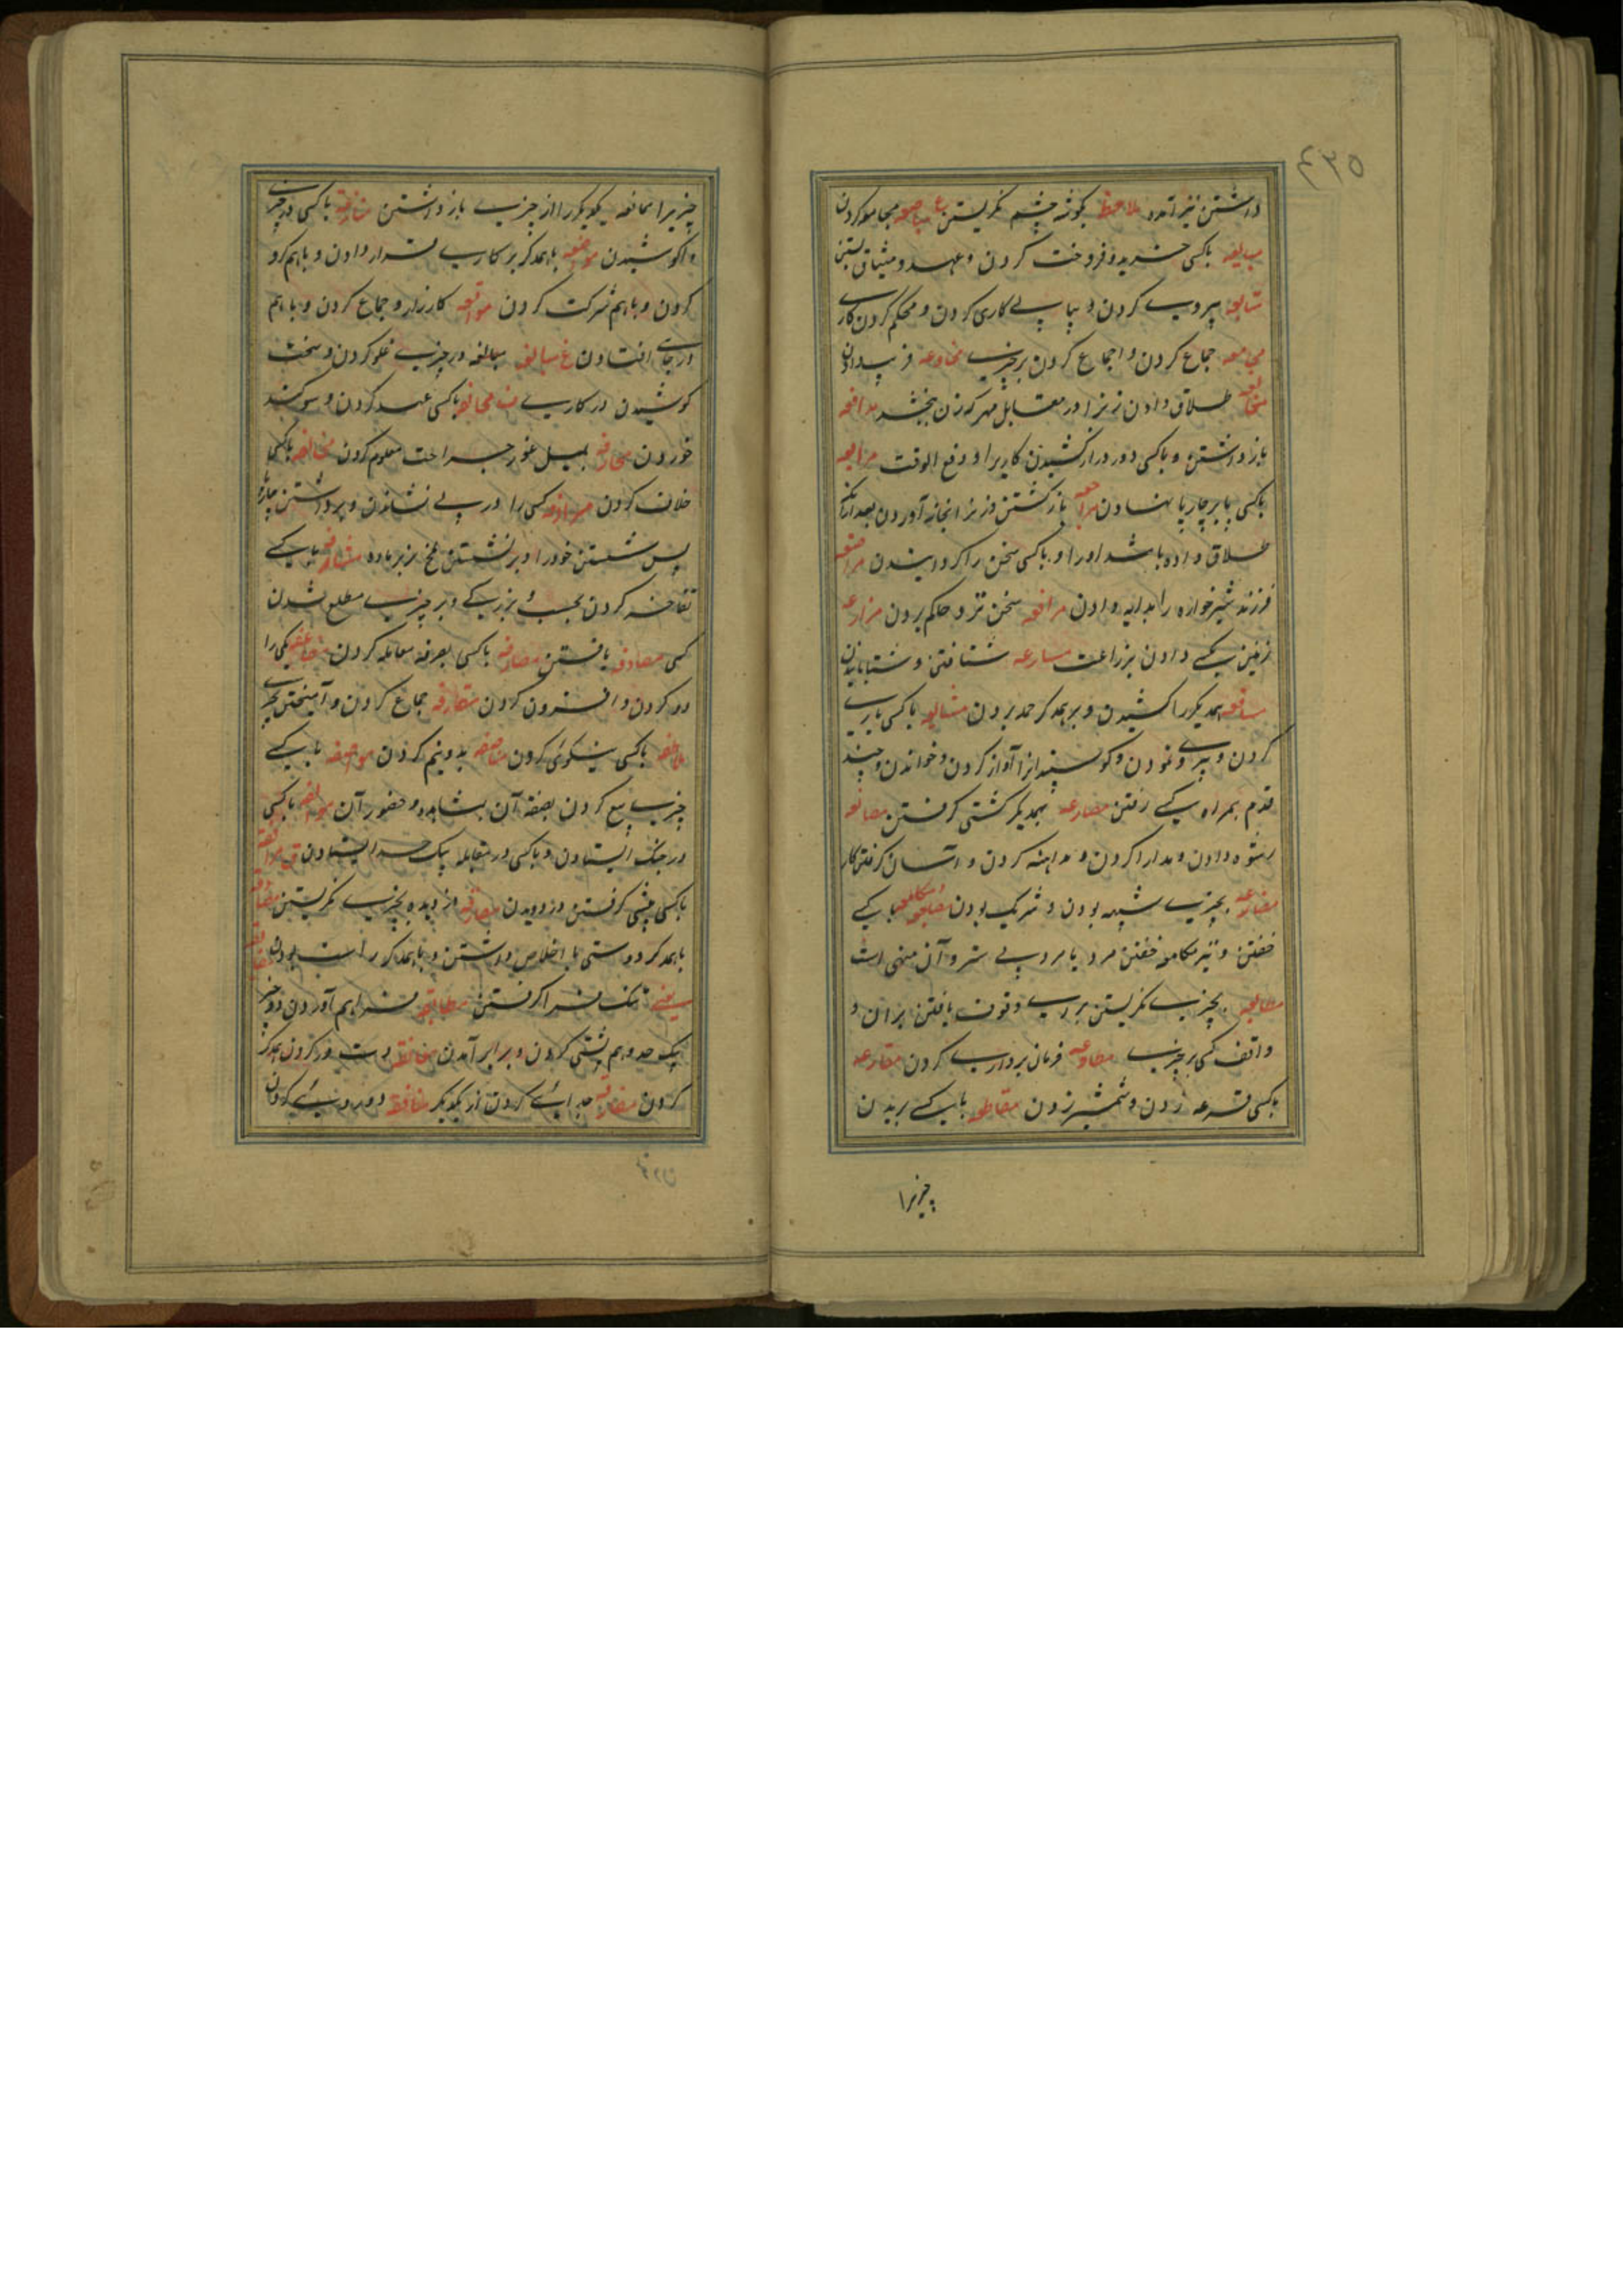 ۵۳۴
داشتن نیز آمده ملاحظه بگوشه چشم نگریستن ع مباضعه مجامعه کردن
مبایعه باکسی خرید و فروخت کردن و عهد و میثاق بستن
متابعه پیروی کردن و پیاپی کاری کردن و محکم کردن کاری
مجامعه جماع کردن و اجماع کردن بر چیزی مخادعه فریب دادن
مخالعه طلاق دادن زن را در مقابل مهر که زن بخشد مدافعه
باز داشتن و باکسی دور دراز کشیدن کاریرا و دفع الوقت مرابعه
باکسی پا بر چارپا نهادن مراجعه باز گشتن و زنرا بخانه آوردن بعد ازانکه
طلاق داده باشد او را و باکسی سخن را گردانیدن مراضعه
فرزند شیرخواره را بدایه دادن مرافعه سخن نزد حاکم بردن مزارعه
زمین بکسی دادن بزراعت مسارعه شتافتن و شتابانیدن
همدیگر را کشیدن و بر همدگر حمله بردن مشایعه باکسی یاری
کردن و پیروی نمودن و گوسپندانرا آواز کردن و خواندن و چند
قدم بهمراه کسی رفتن مصارعه بهمدیگر کشتی گرفتن مصانعه
رشوه دادن و مدارا کردن و مداهنه کردن و آسان گرفتن کار
مضارعه بچیزی شبیه بودن و شریک بودن مضاجعه مکامعه باکسی
خفتن و نیز مکامعه خفتن مرد با مرد بی ستر و آن منهی است
مطالعه بچیزی نگریستن برای وقوف یافتن بران و
واقف کسی بر چیزی مطاوعه فرمان برداری کردن مقارعه
باکسی قرعه زدن و شمشیر زدن مقاطعه باکسی بریدن
چیزیرا
چیزیرا ممانعه یکدیگر را از چیزی باز داشتن منازعه باکسی در چیزی
واکوشیدن مواضعه باهمدگر بر کاری قرار دادن و باهم گرو
کردن و باهم شرکت کردن مواقعه کارزار و جماع کردن و باهم
در جای افتادن غ مبالغه مبالغه در چیزی غلو کردن و سخت
کوشیدن در کاری ف محالفه باکسی عهد کردن و سوگند
خوردن محارفه بمیل غور جراحت معلوم کردن مخالفه باکسی
خلاف کردن مرادفه کسی را در پی نشاندن و برداشتن چارپا
پس نشستن خود را و بر نشستن ملخ نر بر ماده مشارفه باکسی
تفاخر کردن بحسب و بزرگی و بر چیزی مطلع شدن
کسی مصادفه یافتن مصارفه باکسی بصرفه معامله کردن مضاعفه یکی را
دو کردن و افزون کردن مقارفه جماع کردن و آمیختن بچیزی
ملاطفه باکسی نیکوئی کردن مناصفه بدو نیم کردن مواصفه باکسی
چیزی بیع کردن بصفه آن بمشاهده و حضور آن مواقفه باکسی
در جنگ ایستادن و باکسی در مقابله یک حد ایستادن ق مرافقه
باکسی پیشی گرفتن و دویدن مسارقه دزدیده بچیزی نگریستن مصادقه
باهمدگر دوستی با اخلاص داشتن و باهمدگر راست بودن
یعنی تنگ فرا گرفتن مطابقه فراهم آوردن دو چیز
یک حد و هم پشتی کردن و برابر آمدن معانقه دست در گردن همدگر
کردن مفارقه جدائی کردن از یکدیگر منافقه دو روئی کردن